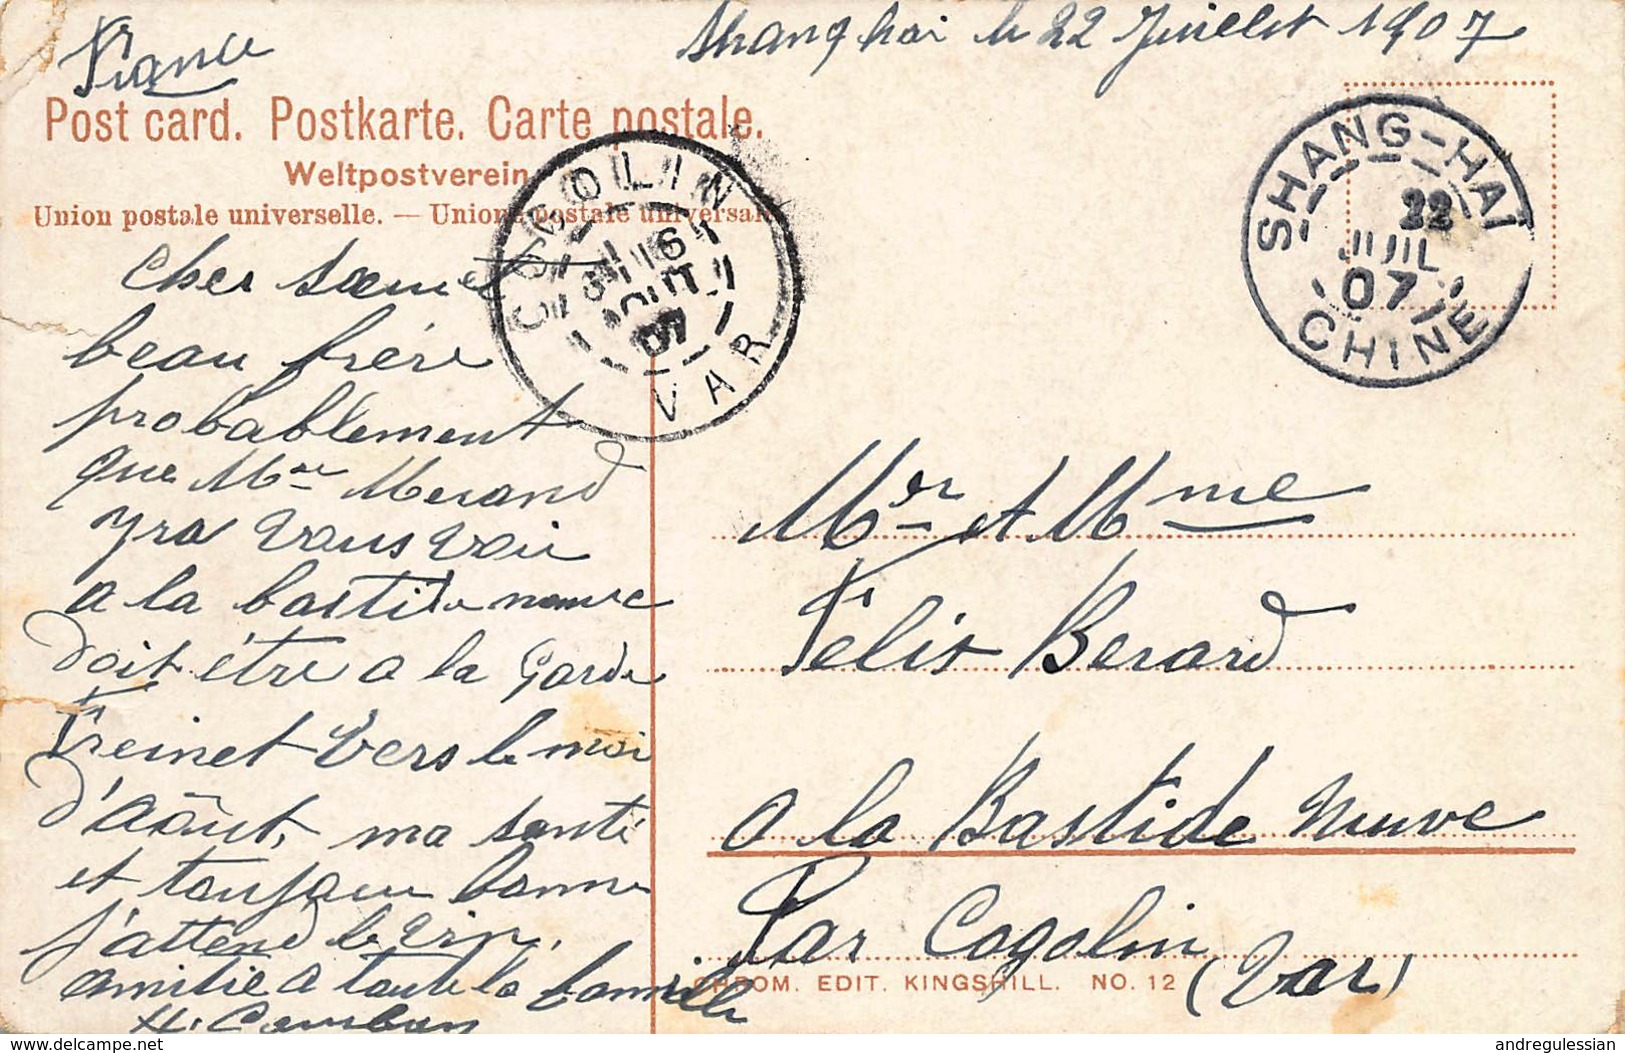 France
Shanghai le 22 Juillet 1907
Post card. Postkarte. Carte postale.
Weltpostverein
Union postale universelle. — Unione postale universale
COGOLIN
6
AOUT
07
VAR
SHANG-HAÏ
22
JUIL
07
CHINE
Cher sœur et
beau frére
probablement
que Mme Merand
yra vous voir
a la bastide neuve
doit étre a la Garde
Freinet vers le moi
d'aoüt, ma santé
et toujour bonne
j'attend le vin.
amitie a toute la famille
H.
Mr et Mme
Felix Berard
a la Bastide Neuve
Par Cogolin
(Var)
CHROM. EDIT. KINGSHILL. NO. 12
https://www.delcampe.net
andregulessian